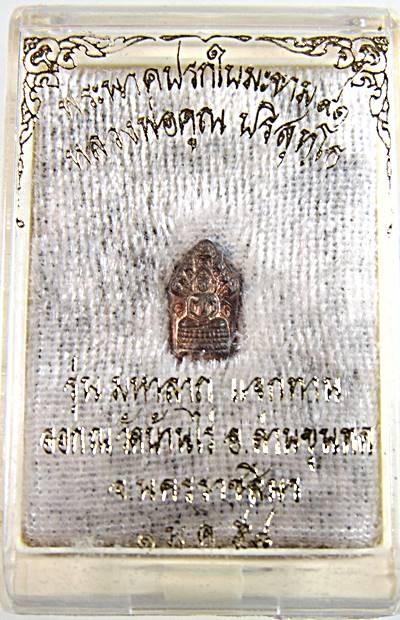 พระนาคปรกใบมะขาม
หลวงพ่อคูณ ปริสุทฺโธ
รุ่น มหาลาภ แจกทาน
ออก ณ วัดบ้านไร่ อ.ด่านขุนทด
จ.นครราชสีมา
๑ ม.ค. ๕๕